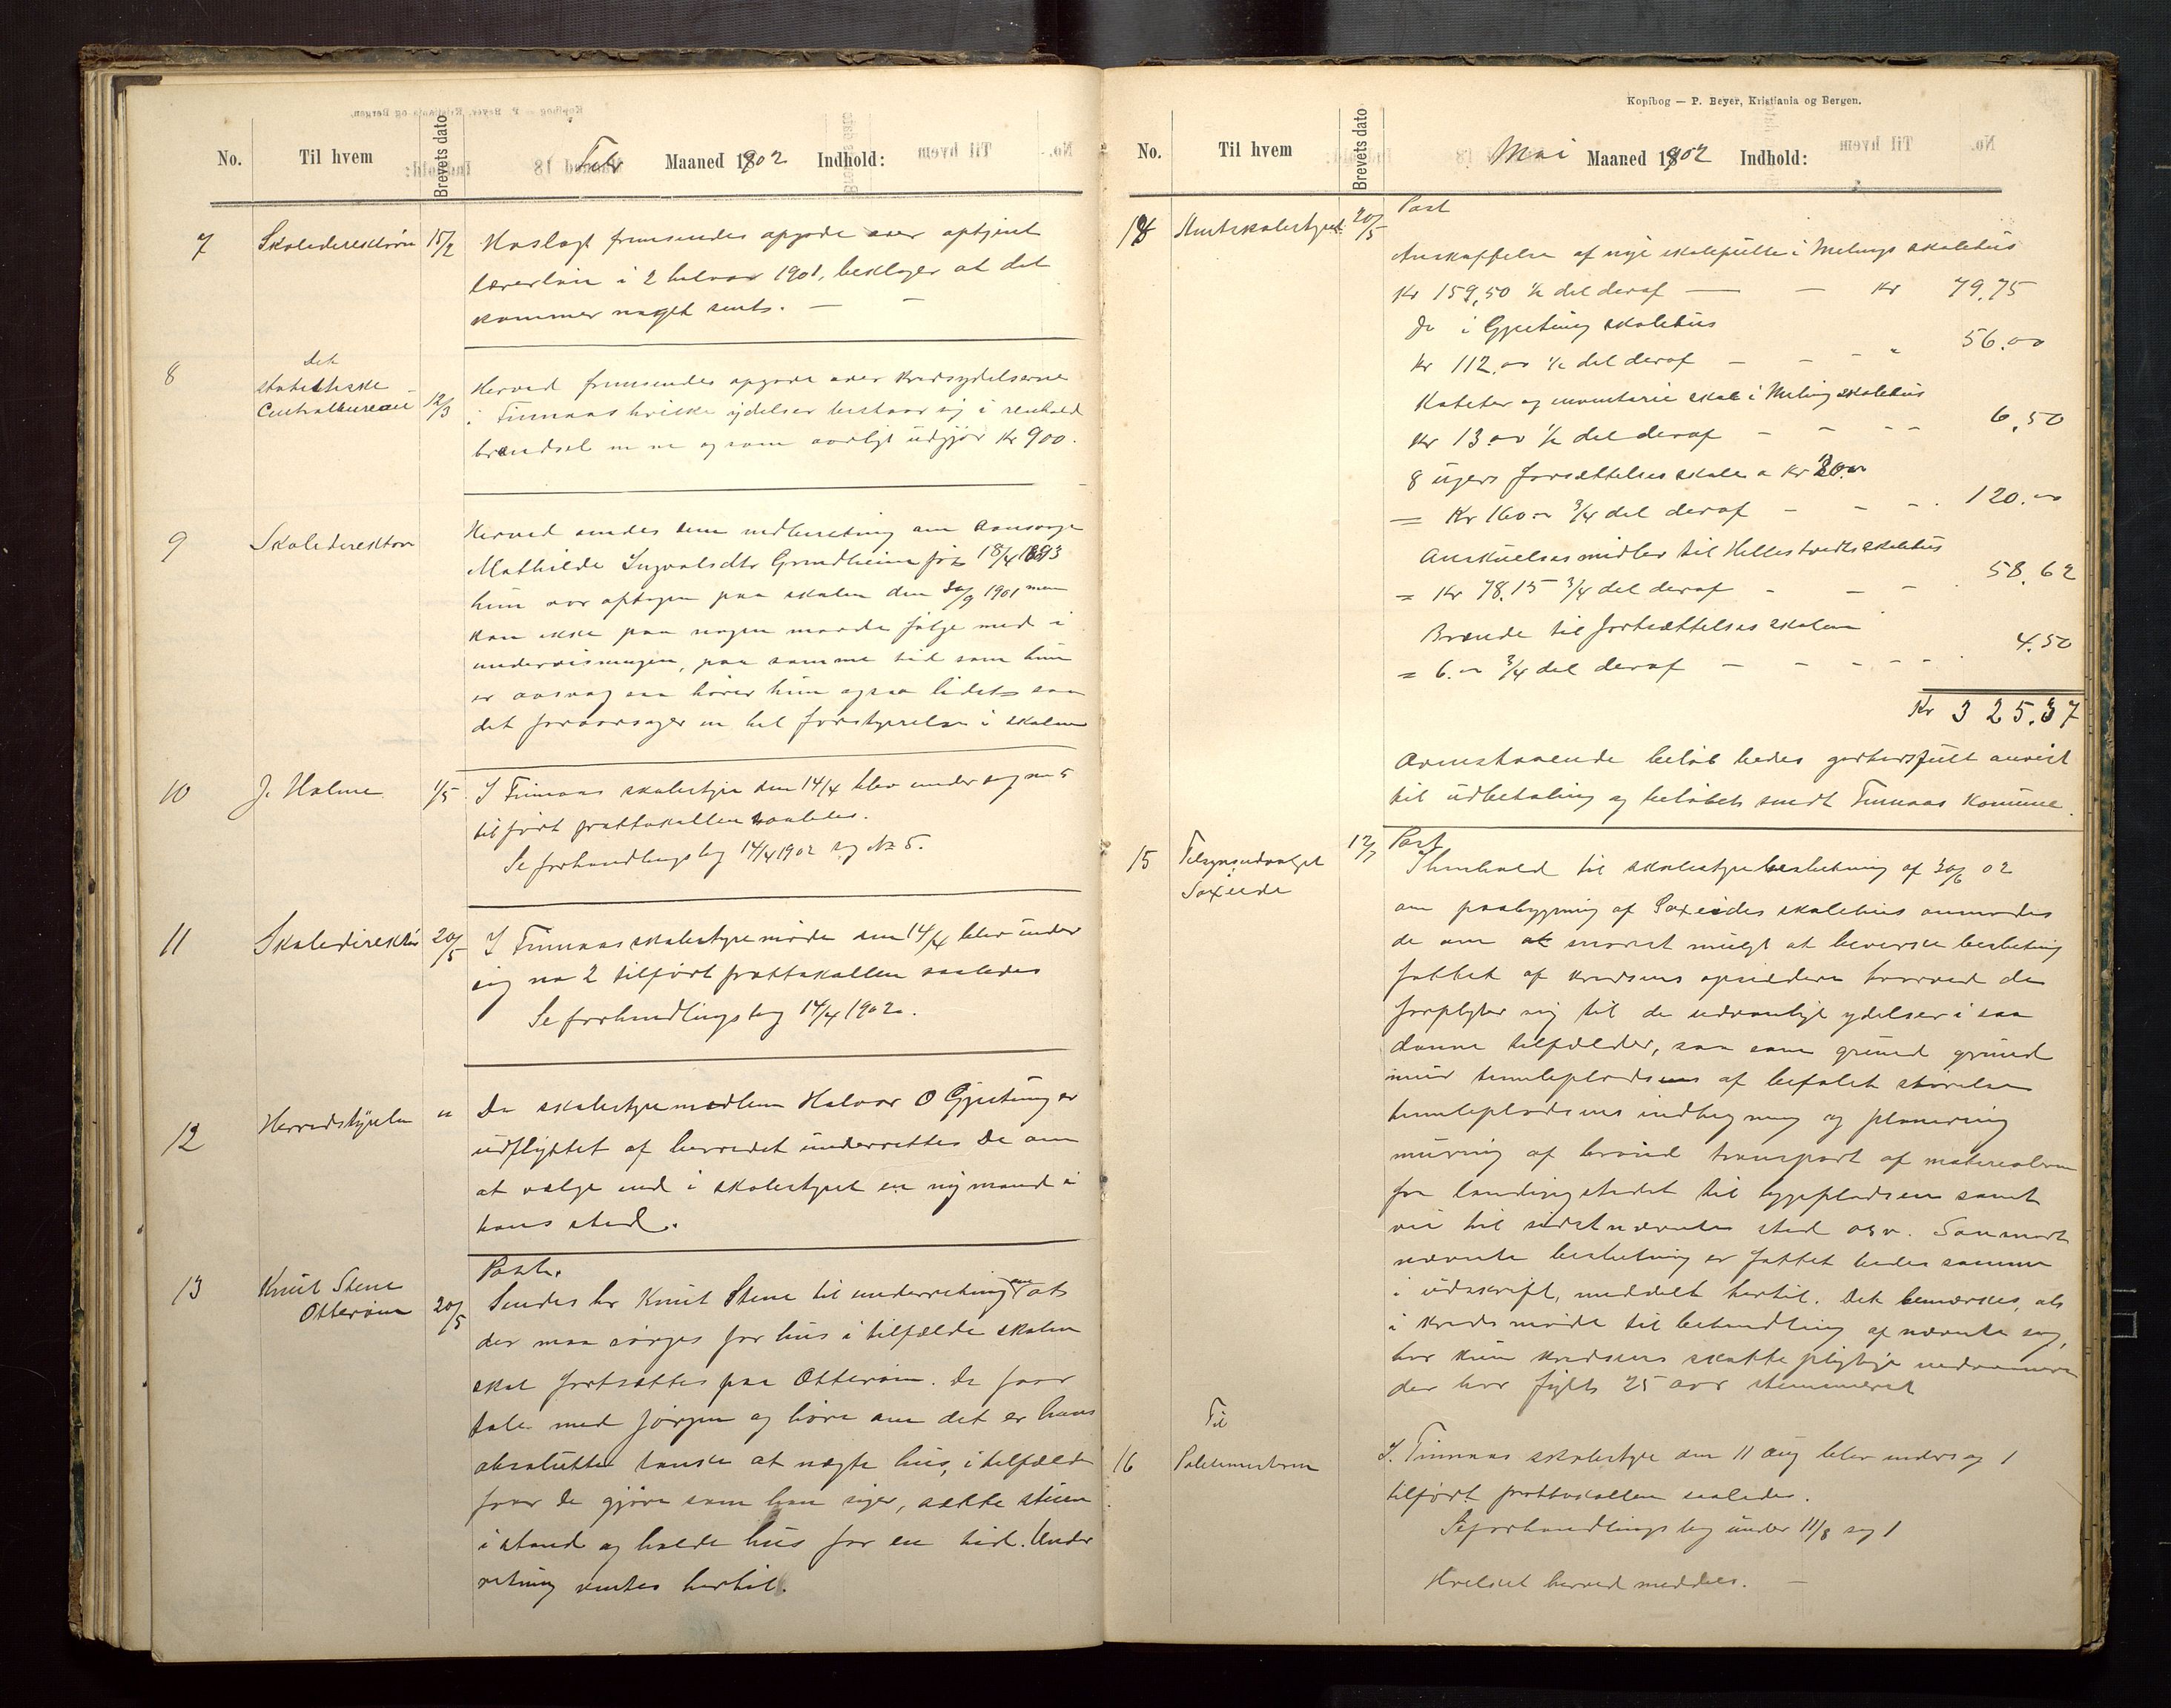 No. Til hvem Brevets dato Febr Maaned 1902 Indhold:
7 Skoledirektøren 15/2 Vaslagt fremsendes opgave over optjent
lærerløn i 2 halvaar 1901, beklager at det
kommer noget sent. —
8 Det
statistiske
Centralbureau 12/3
Herved fremsendes opgave over kredsydelserne
i Finnaas hvilke ydelser bestaar sig i renhold
brændsel m m og som aarligt udgjør Kr 900.
9 Skoledirektøren
Herved sendes dem indberetning om aansvage
Mathilde Ingvalsdtr Grindheim fød 18/4 1893
hun var optagen paa skolen den 30/9 1901 men
kan ikke paa nogen maade følge med i
undervisningen, paa samme tid som hun
er aansvag saa hører hun ogsaa lidet saa
det foraarsager en hel forstyrrelse i skolen
10 J. Halme 1/5 I Finnaas skolestyre den 14/4 blev under sag no 5
tilført prottokollen saaledes.
Se forhandlingsbog 14/4 1902 sag No 5.
11 Skoledirektør 20/5 I Finnaas skolestyremøde den 14/4 blev under
sag no 2 tilført prottokollen saaledes
Se forhandlingsbog 14/4 1902.
12 Herredstyrelsen " Da skolestyremedlem Halvor O Gjertung er
udflyttet af herredet underrettes De om
at vælge ind i skolestyret en ny mand i
hans sted.
13 Knut Stene
Otterøen 20/5
Post.
Sendes hr Knut Stene til underretning om at
der maa sørges for hus i tilfælde skolen
skal fortsættes paa Otterøen. De faar
tale med Jørgen og høre om det er hans
absolutte tanke at nægte hus, i tilfælde
faar De gjøre som han siger, sætte stuen
i stand og holde hus for en tid. Under
retning ventes hertil.
Kopibog — P. Beyer, Kristiania og Bergen.
No. Til hvem Brevets dato Mai Maaned 1902 Indhold:
18 Amtskolestyret 20/5 Post
Anskaffelse af nye skolepulte i Melings skolehus
Kr 159,50 ½ del deraf — — Kr 79.75
Do i Gjertung skolehus
Kr 112.00 ½ del deraf — — - " 56.00
Kateter og inventarie skab i Meling skolehus
Kr 13.00 ½ del deraf - - - - 6,50
8 ugers forsættelses skole a Kr 20.00
= Kr 160.00 ¾ del deraf - - - 120.00
Anskuelsesmidler til Hellestvedts skolehus
= Kr 78.15 ¾ del deraf - - - 58.62
Brænde til fortsættelses skolen
= 6.00 ¾ del deraf - - - - 4.50
Kr 325.37
Ovenstaaende beløb bedes godhedsfuldt anvist
til udbetaling og beløbet sendt Finnaas Komune.
15 Tilsynsudvalget
Sæxeide 12/7 Post
I henhold til skolestyrebeslutning af 30/6 02
om paabygning af Sæxeides skolehus anmodes
de om at snarest muligt at beverke beslutning
fattet af kredsens opsiddere hvorved de
forplyter sig til de sedvanlige ydelser i saa
danne tilfælder, saa som grund grund
mur tunleplads af befalet størelse
tunlepladsens indhegning og planering
muring af brønd transport af materialerne
fra landingstedet til byggepladsen samt
vei til sidstnævnte sted osv. Saasnart
nævnte beslutning er fattet bedes samme
i udskrift, meddelt hertil. Det bemærkes, at
i kreds møde til behandling af nævnte sag,
har kun kredsens skatte pligtige indvaanere
der har fyldt 25 aar stemmeret
16 Til
I Finnaas skolestyre den 11 aug blev under sag 1
tilført prottokollen saaledes.
Se forhandlingsbog under 11/8 sag 1
Hvilket herved meddeles. —